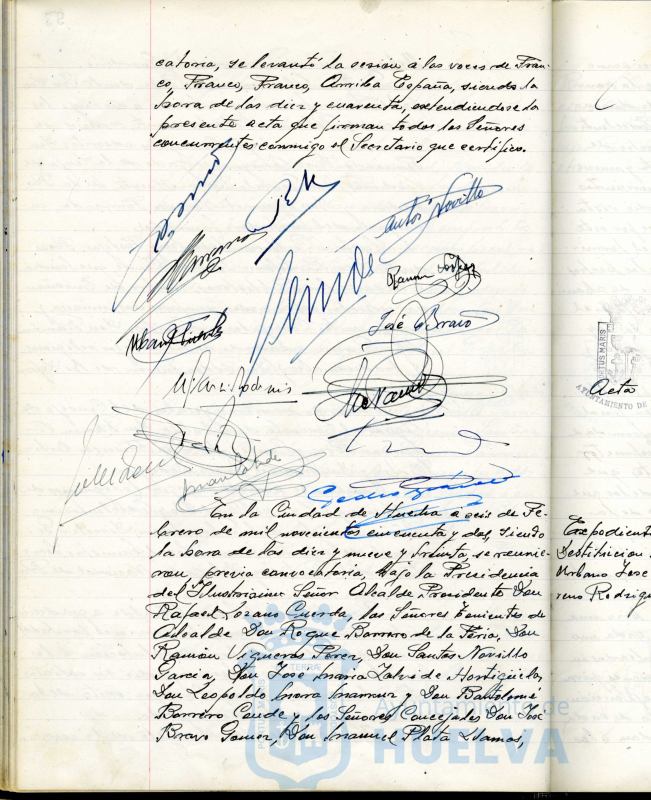 catoria, se levantó la sesión a las voces de Fran-
co, Franco, Franco, Arriba España, siendo la
hora de las diez y cuarenta, extendiendose la
presente acta que firman todos los Señores
concurrentes conmigo el Secretario que certifico.
Santos Novillo
José Bravo
Acta
En la Ciudad de Huelva a seis de Fe-
brero de mil novecientos cincuenta y dos, siendo
la hora de las diez y nueve y treinta, se reunie-
ron, previa convocatoria, bajo la Presidencia
del Ilustrisimo Señor Alcalde Presidente Don
Rafael Lozano Cuerda, los Señores Tenientes de
Alcalde Don Roque Barrero de la Feria, Don
Ramón Vigueras Perez, Don Santos Novillo
Garcia, Don Jose Maria Zalvide Hortigüela,
Don Leopoldo Mora Mamur y Don Bartolomé
Borrero Conde y los Señores Concejales Don José
Bravo Gomez, Don Manuel Plata Llamas,
Expedient
Destitucion
Urbano Jose
reno Rodrigu
Ayuntamiento de
HUELVA